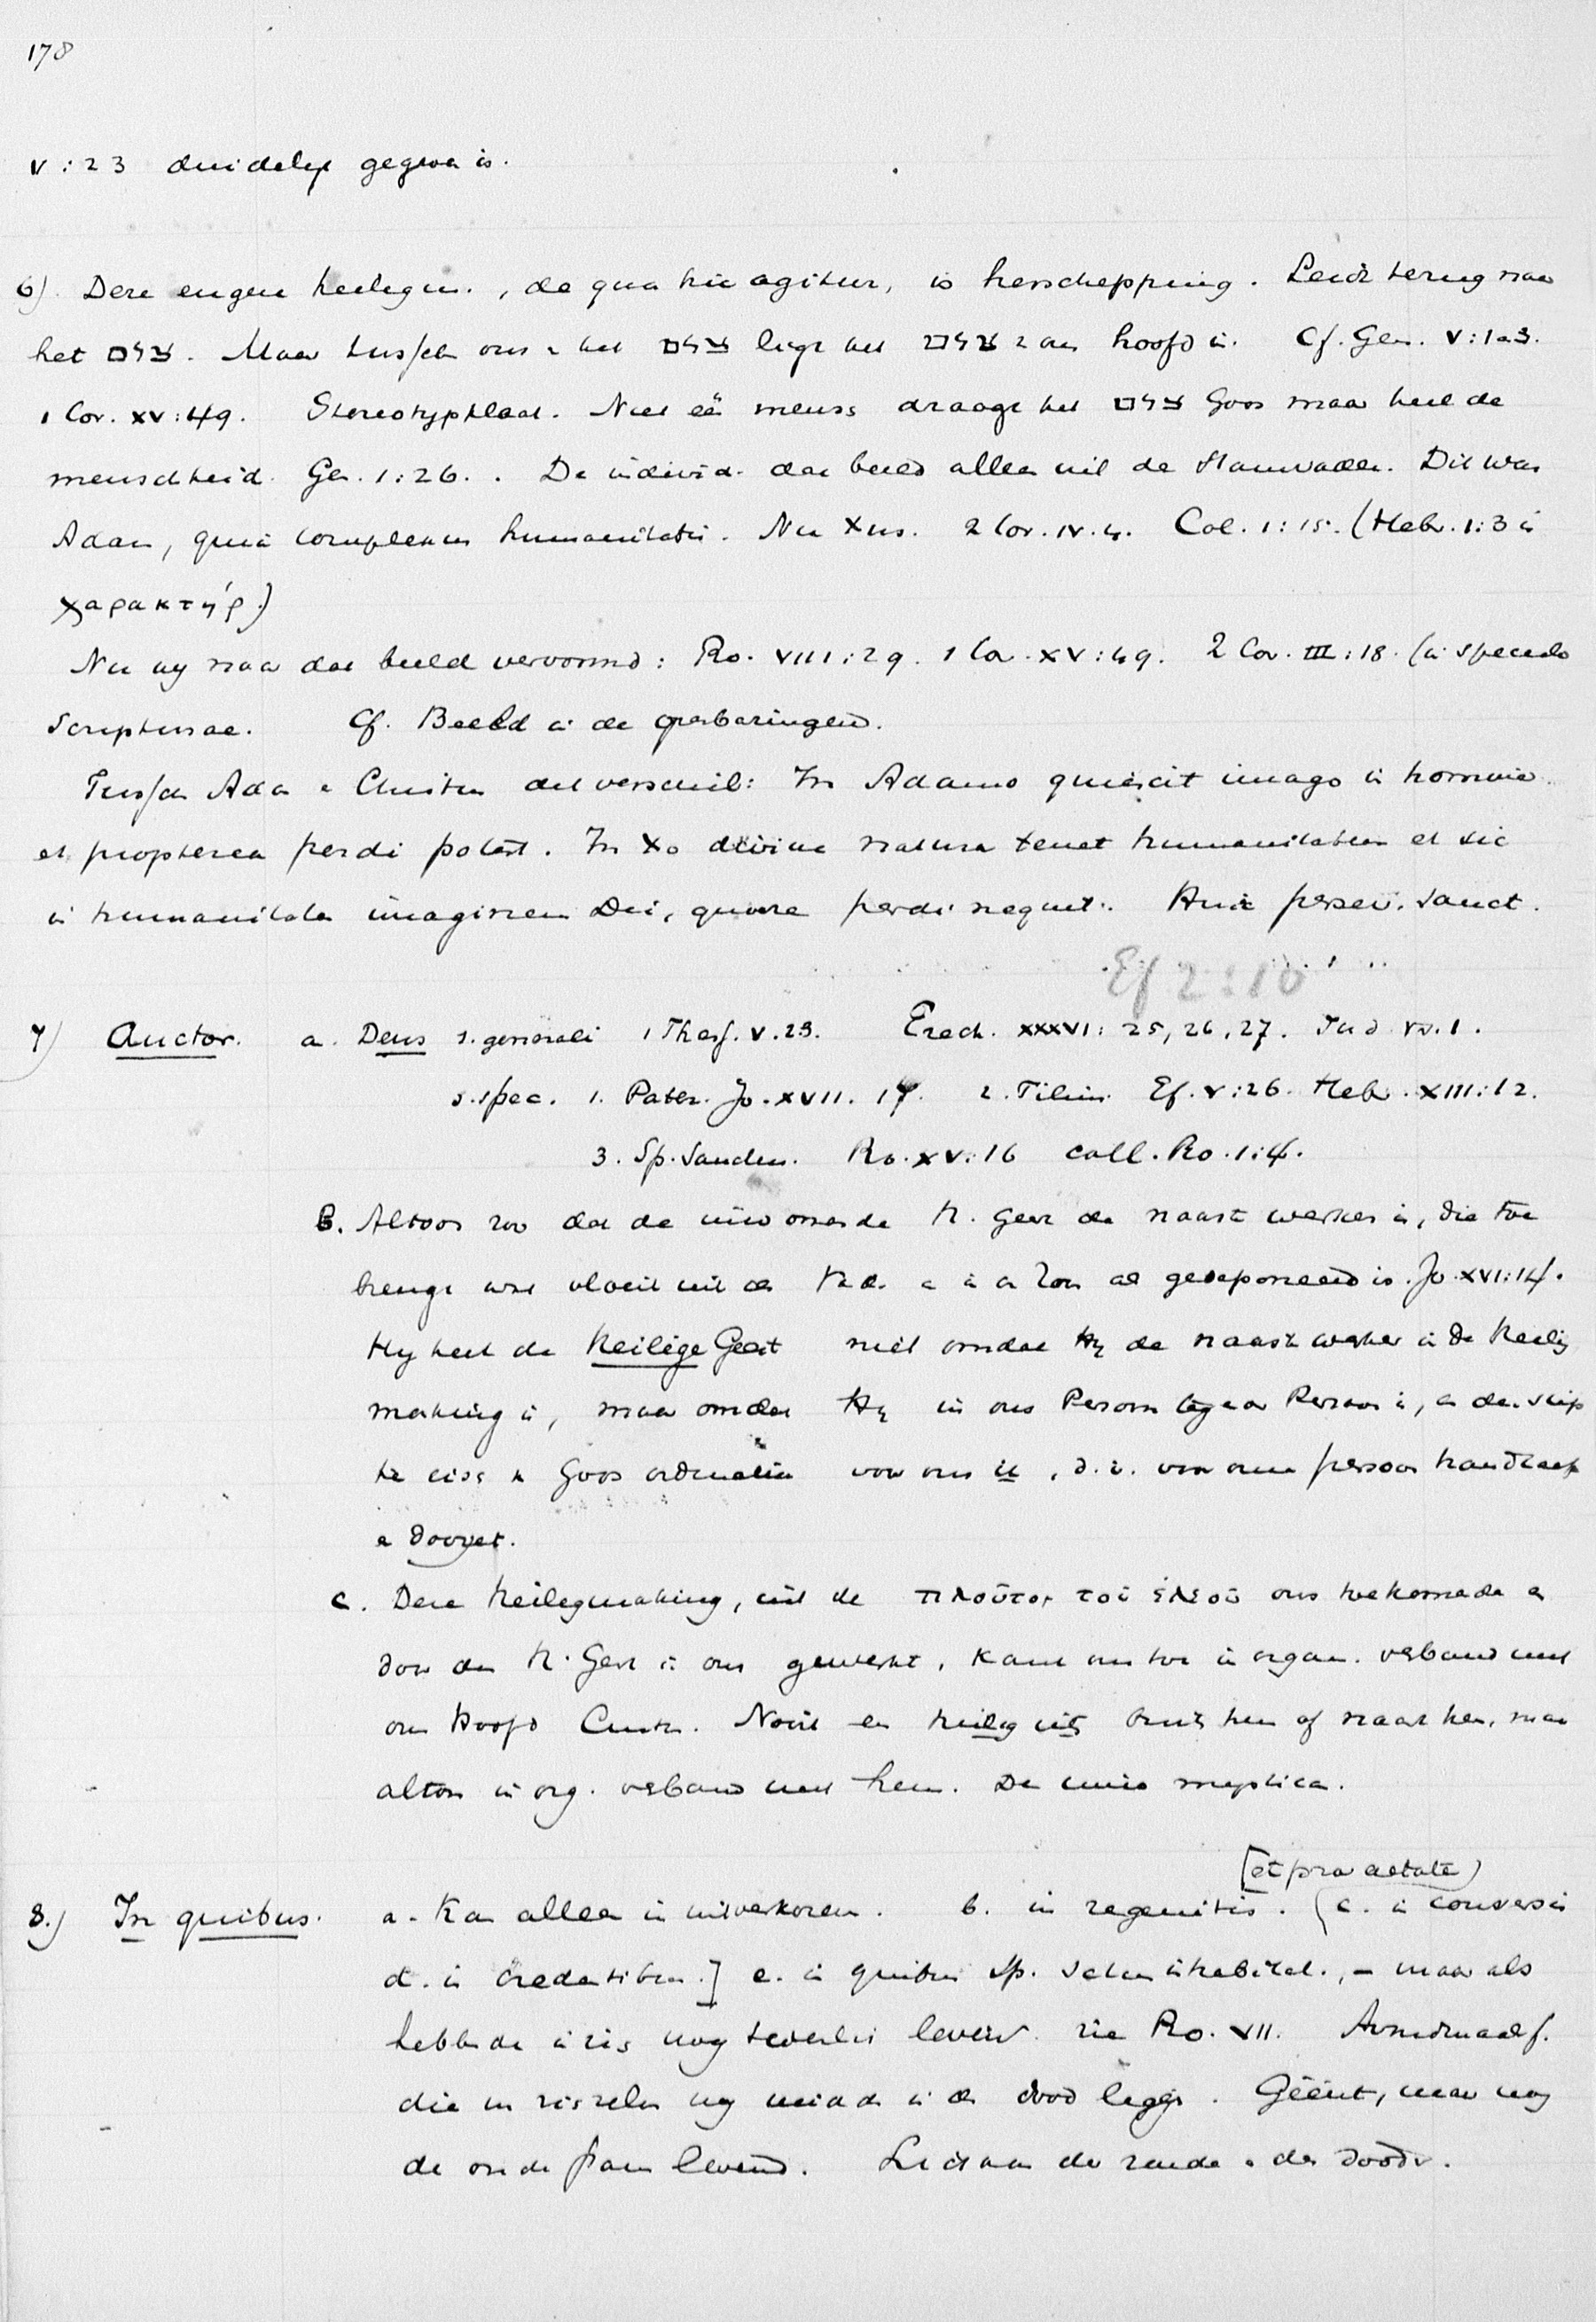 178
V : 23 duidelijk gegeven is.
6) Deze eigen heiligm., de qua hic agitur, is herschepping. Leidt terug naar
het צלם. Maar tusschen ons en het צלם ligt het צלם v an hoofd in. Cf. Gen. V : 1 a 3.
1 Cor. XV : 49. Stereotypplaat. Niet één mensch draagt het צלם Gods maar heel de
menschheid. Gen. 1 : 26. . De individ. dat beeld alleen uit de Stamvader. Dit was
Adam, quia complexum humanitatis. Nu Xus. 2 Cor. IV. 4. Col. 1 : 15. (Hebr. 1 : 3 is
χαρακτήρ)
Nu wij naar dat beeld vervormd : Ro. VIII : 29. 1 Cor. XV : 49. 2 Cor. III : 18. (in speculo
Scripturae. Cf. Beeld in de openbaringen.
Tusschen Adam en Christus dit verschil : In Adamo quiescit imago in homine
et propterea perdi potest. In Xo divina natura tenet humanitatem et sic
in humanitate imaginem Dei, quare perdi nequit. Hinc persev. sanct.
Ef 2 : 10
7) Auctor. a. Deus s. generali 1 Thess. V. 23. Ezech. XXXVI : 25, 26, 27. Jud. vs. 1.
s. spec. 1. Pater. Jo. XVII. 17. 2. Filius. Ef. V : 26. Hebr. XIII : 12.
3. Sp. Sanctus. Ro. XV : 16 coll. Ro. 1 : 4.
B. Altoos zoo dat de inwonende H. Geest de naaste werker is, die toe
brengt wat vloeit uit de Vad. en in den Zoon al gedeponeerd is. Jo. XVI : 14.
Hij heet de heilige Geest niet omdat Hij de naaste werker in de heilig
making is, maar omdat Hij in ons Persoon tegen Persoon is, en den stip
te eisch v Gods ordinatiën voor ons ik, d. i. voor onze persoon handhaaft
en doorzet.
C. Deze heiligmaking, uit de πλοῦτος τοῦ ἐλεοῦ ons toekomende en
door den H. Geest in ons gewerkt, komt ons toe in organ. verband met
ons Hoofd Christus. Nooit een heilig iets buiten hem of naast hem, maar
altoos in org. verband met hem. De unio mystica.
[et pro aetate)
8.) In quibus. a. Kan alleen in uitverkoren. b. in regenitis. (c. in conversis
d. in credentibus.] e. in quibus Sp. Sanctus inhabitat., – maar als
hebbende in zich nog tweeërlei leven. zie Ro. VII. Avondmaalsf.
die in zichzelven nog midden in den dood liggen. Geënt, maar nog
de oude stam levend. Lid van de zonde en des doods.